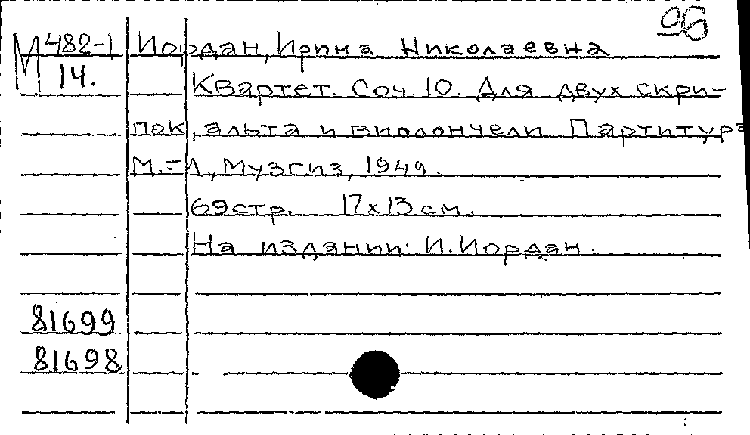 96
М 482-1 Иордан, Ирина Николаевна
14.
Квартет. Соч 10. Для двух скри-
пок, альта и виолончели Партитура
М.-Л, Музгиз, 1949.
69стр. 17х13см.
На издании: И.Иордан.
81699
81698